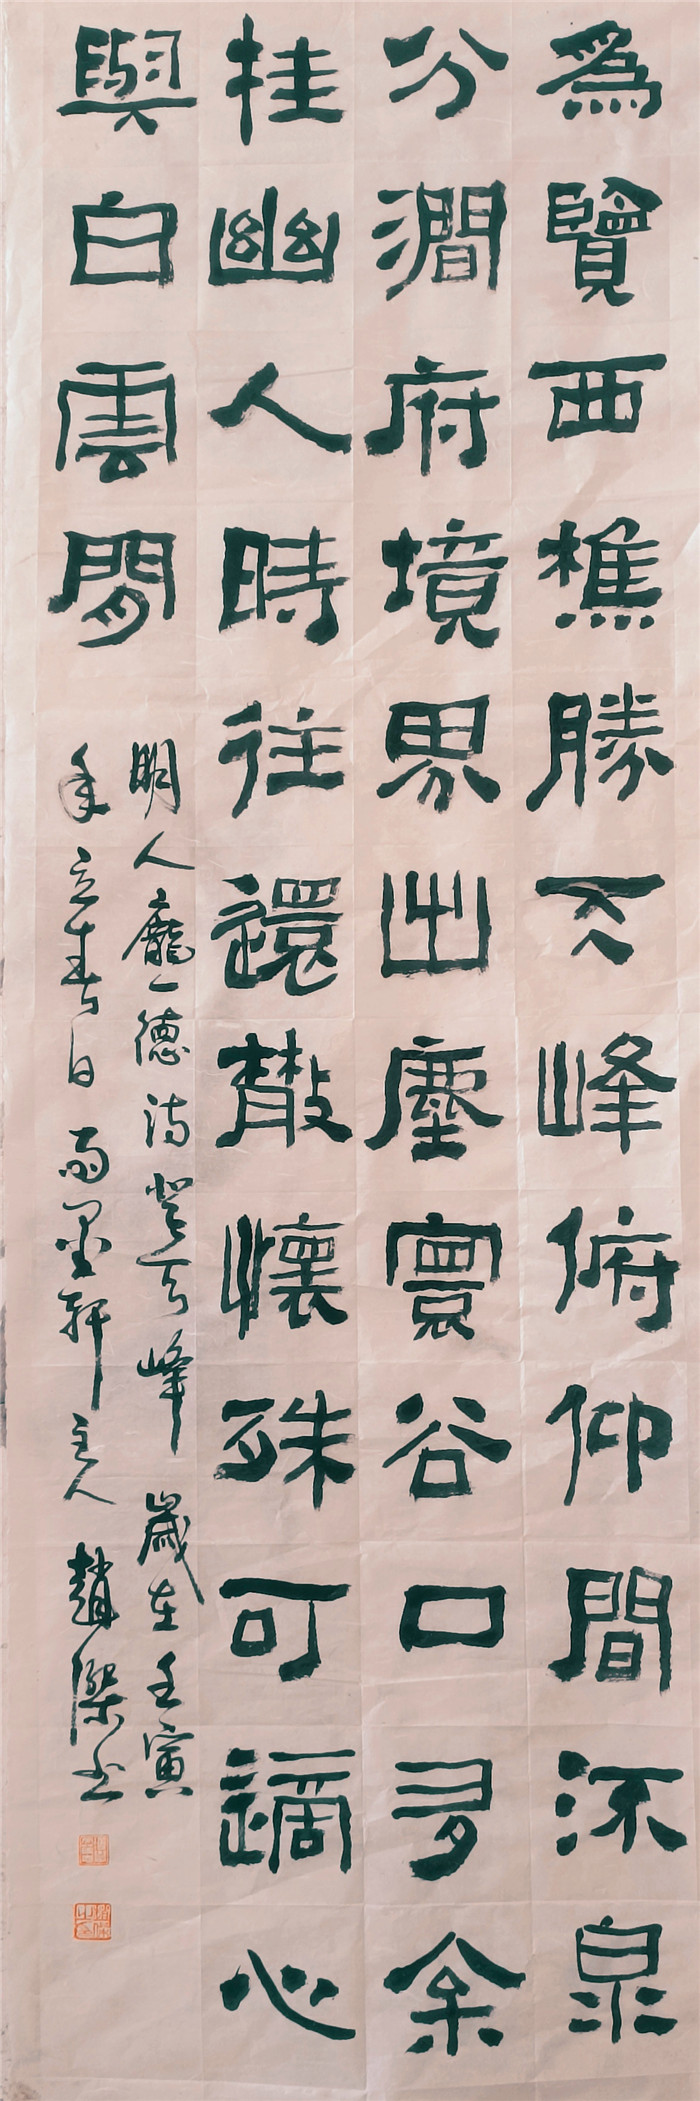 為覽西樵勝天峰俯仰間流泉
分澗府境界出塵寰谷口多余
桂幽人時往還散懷殊可適心
與白雲閒
明人龐一德詩登天峰 歲在壬寅
年立春日雨墨軒主人趙傑書